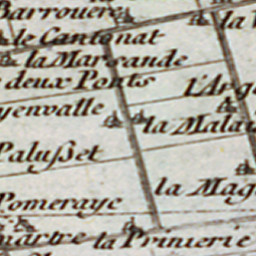 Barrouere
la
le Cantonat
la Marsande
deux Ponts
L'Arg
yenvalle
la Malai
Palusset
la Mag
Pomeraye
martre la Prinierie